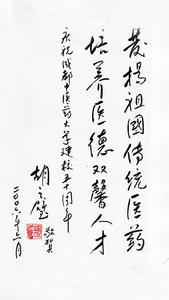 發揚祖國傳統医药
培养医德双馨人才
庆祝成都中医药大学建校五十周年
胡之璧
敬贺
二〇〇六年三月